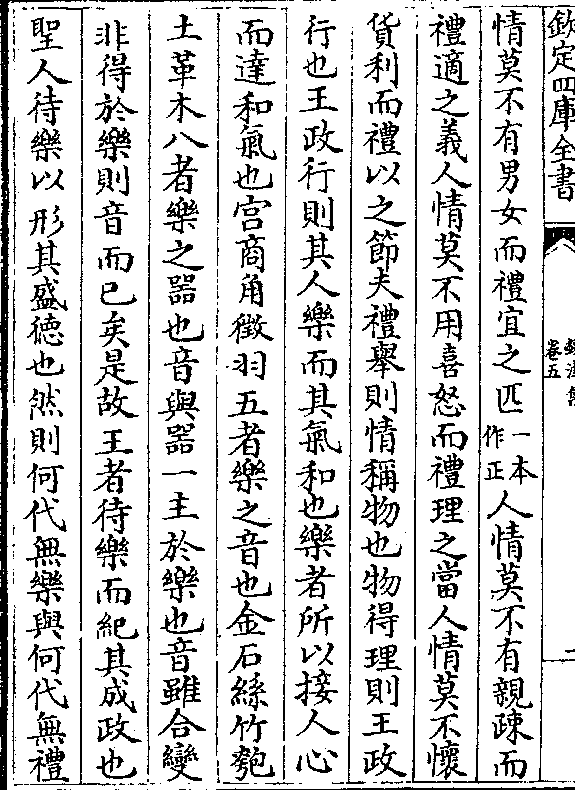 欽定四庫全書
卷五
二
情莫不有男女而禮宜之匹一本作正人情莫不有親疎而
禮適之義人情莫不用喜怒而禮理之當人情莫不懷
貨利而禮以之節夫禮舉則情稱物也物得理則王政
行也王政行則其人樂而其氣和也樂者所以接人心
而達和氣也宫商角徵羽五者樂之音也金石絲竹匏
土革木八者樂之器也音與器一主於樂也音雖合變
非得於樂則音而已矣是故王者待樂而紀其成政也
聖人待樂以形其盛徳也然則何代無樂與何代無禮